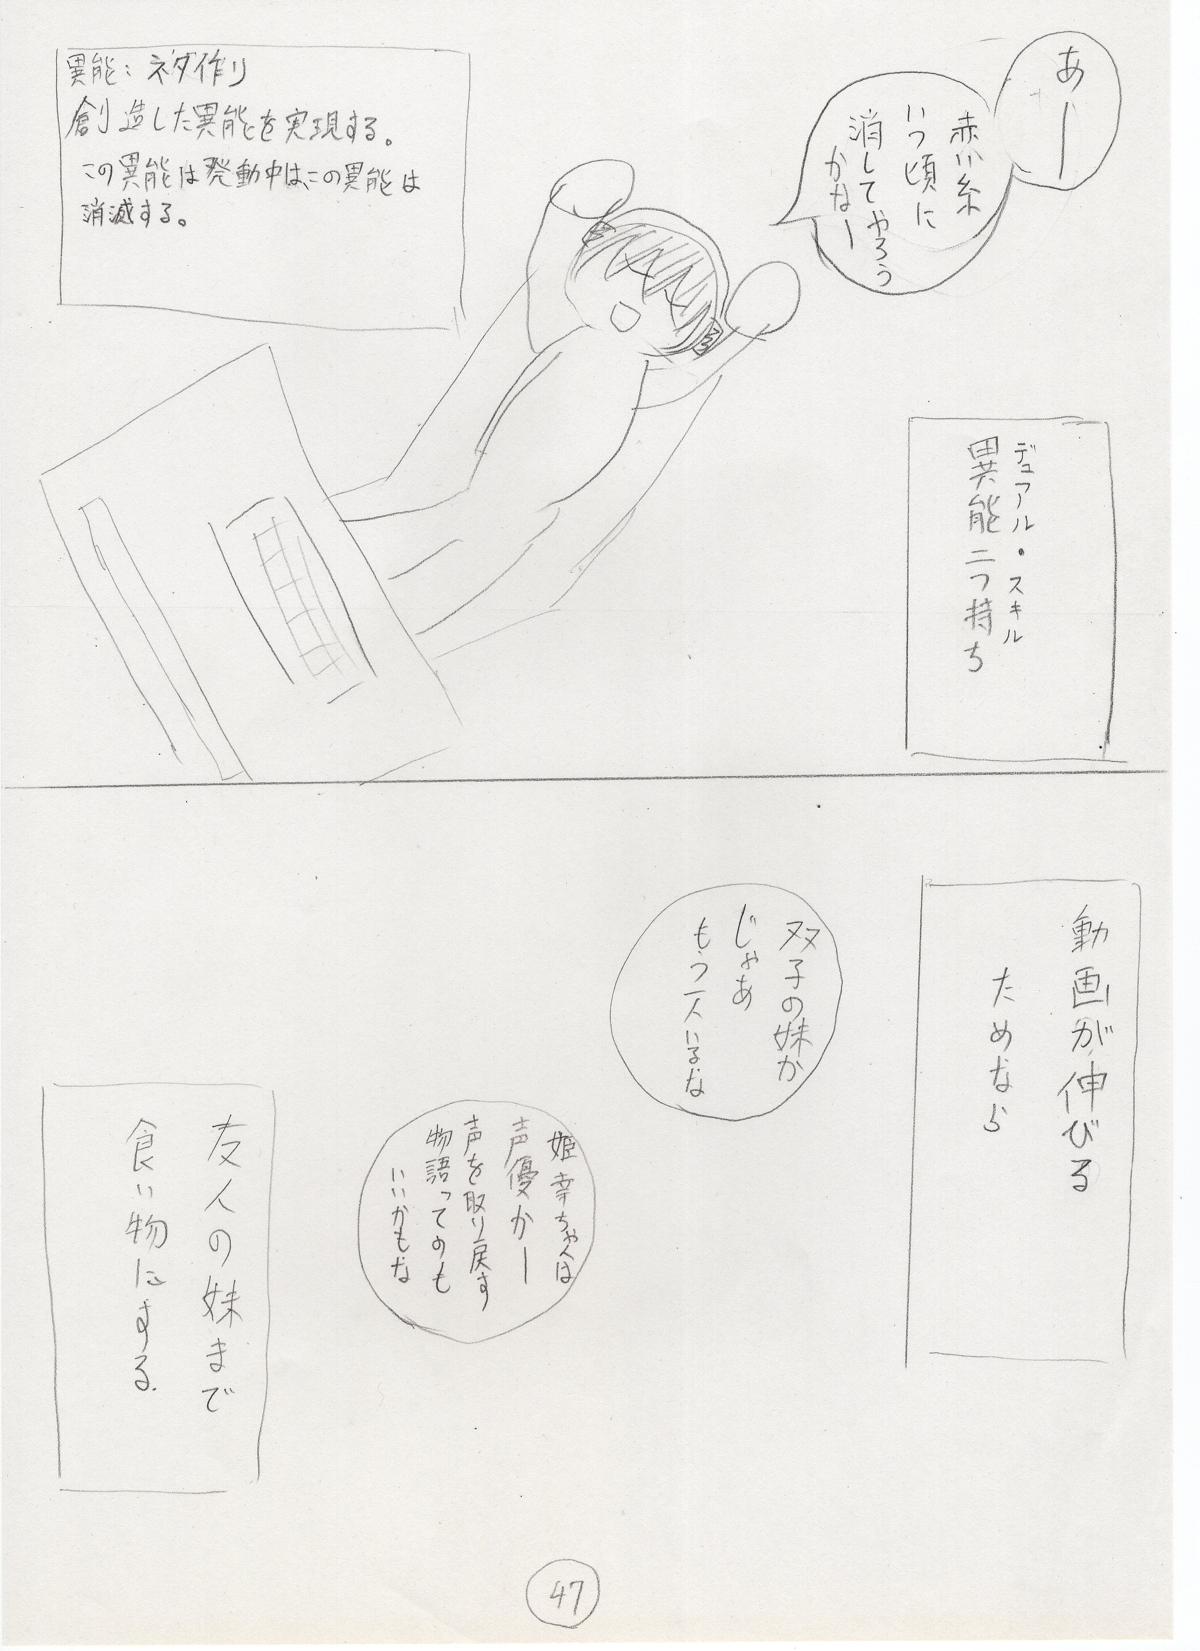 あー
赤い糸
いつ頃に
消してやろう
かなー
異能：ネタ作り
創造した異能を実現する。
この異能は発動中は、この異能は
消滅する。
デュアル・スキル
異能二つ持ち
動画が伸びる
ためなら
双子の妹か
じゃあ
もう一人いるな
姫幸ちゃんは
声優かー
声を取り戻す
物語ってのも
いいかもな
友人の妹まで
食い物にする.
47